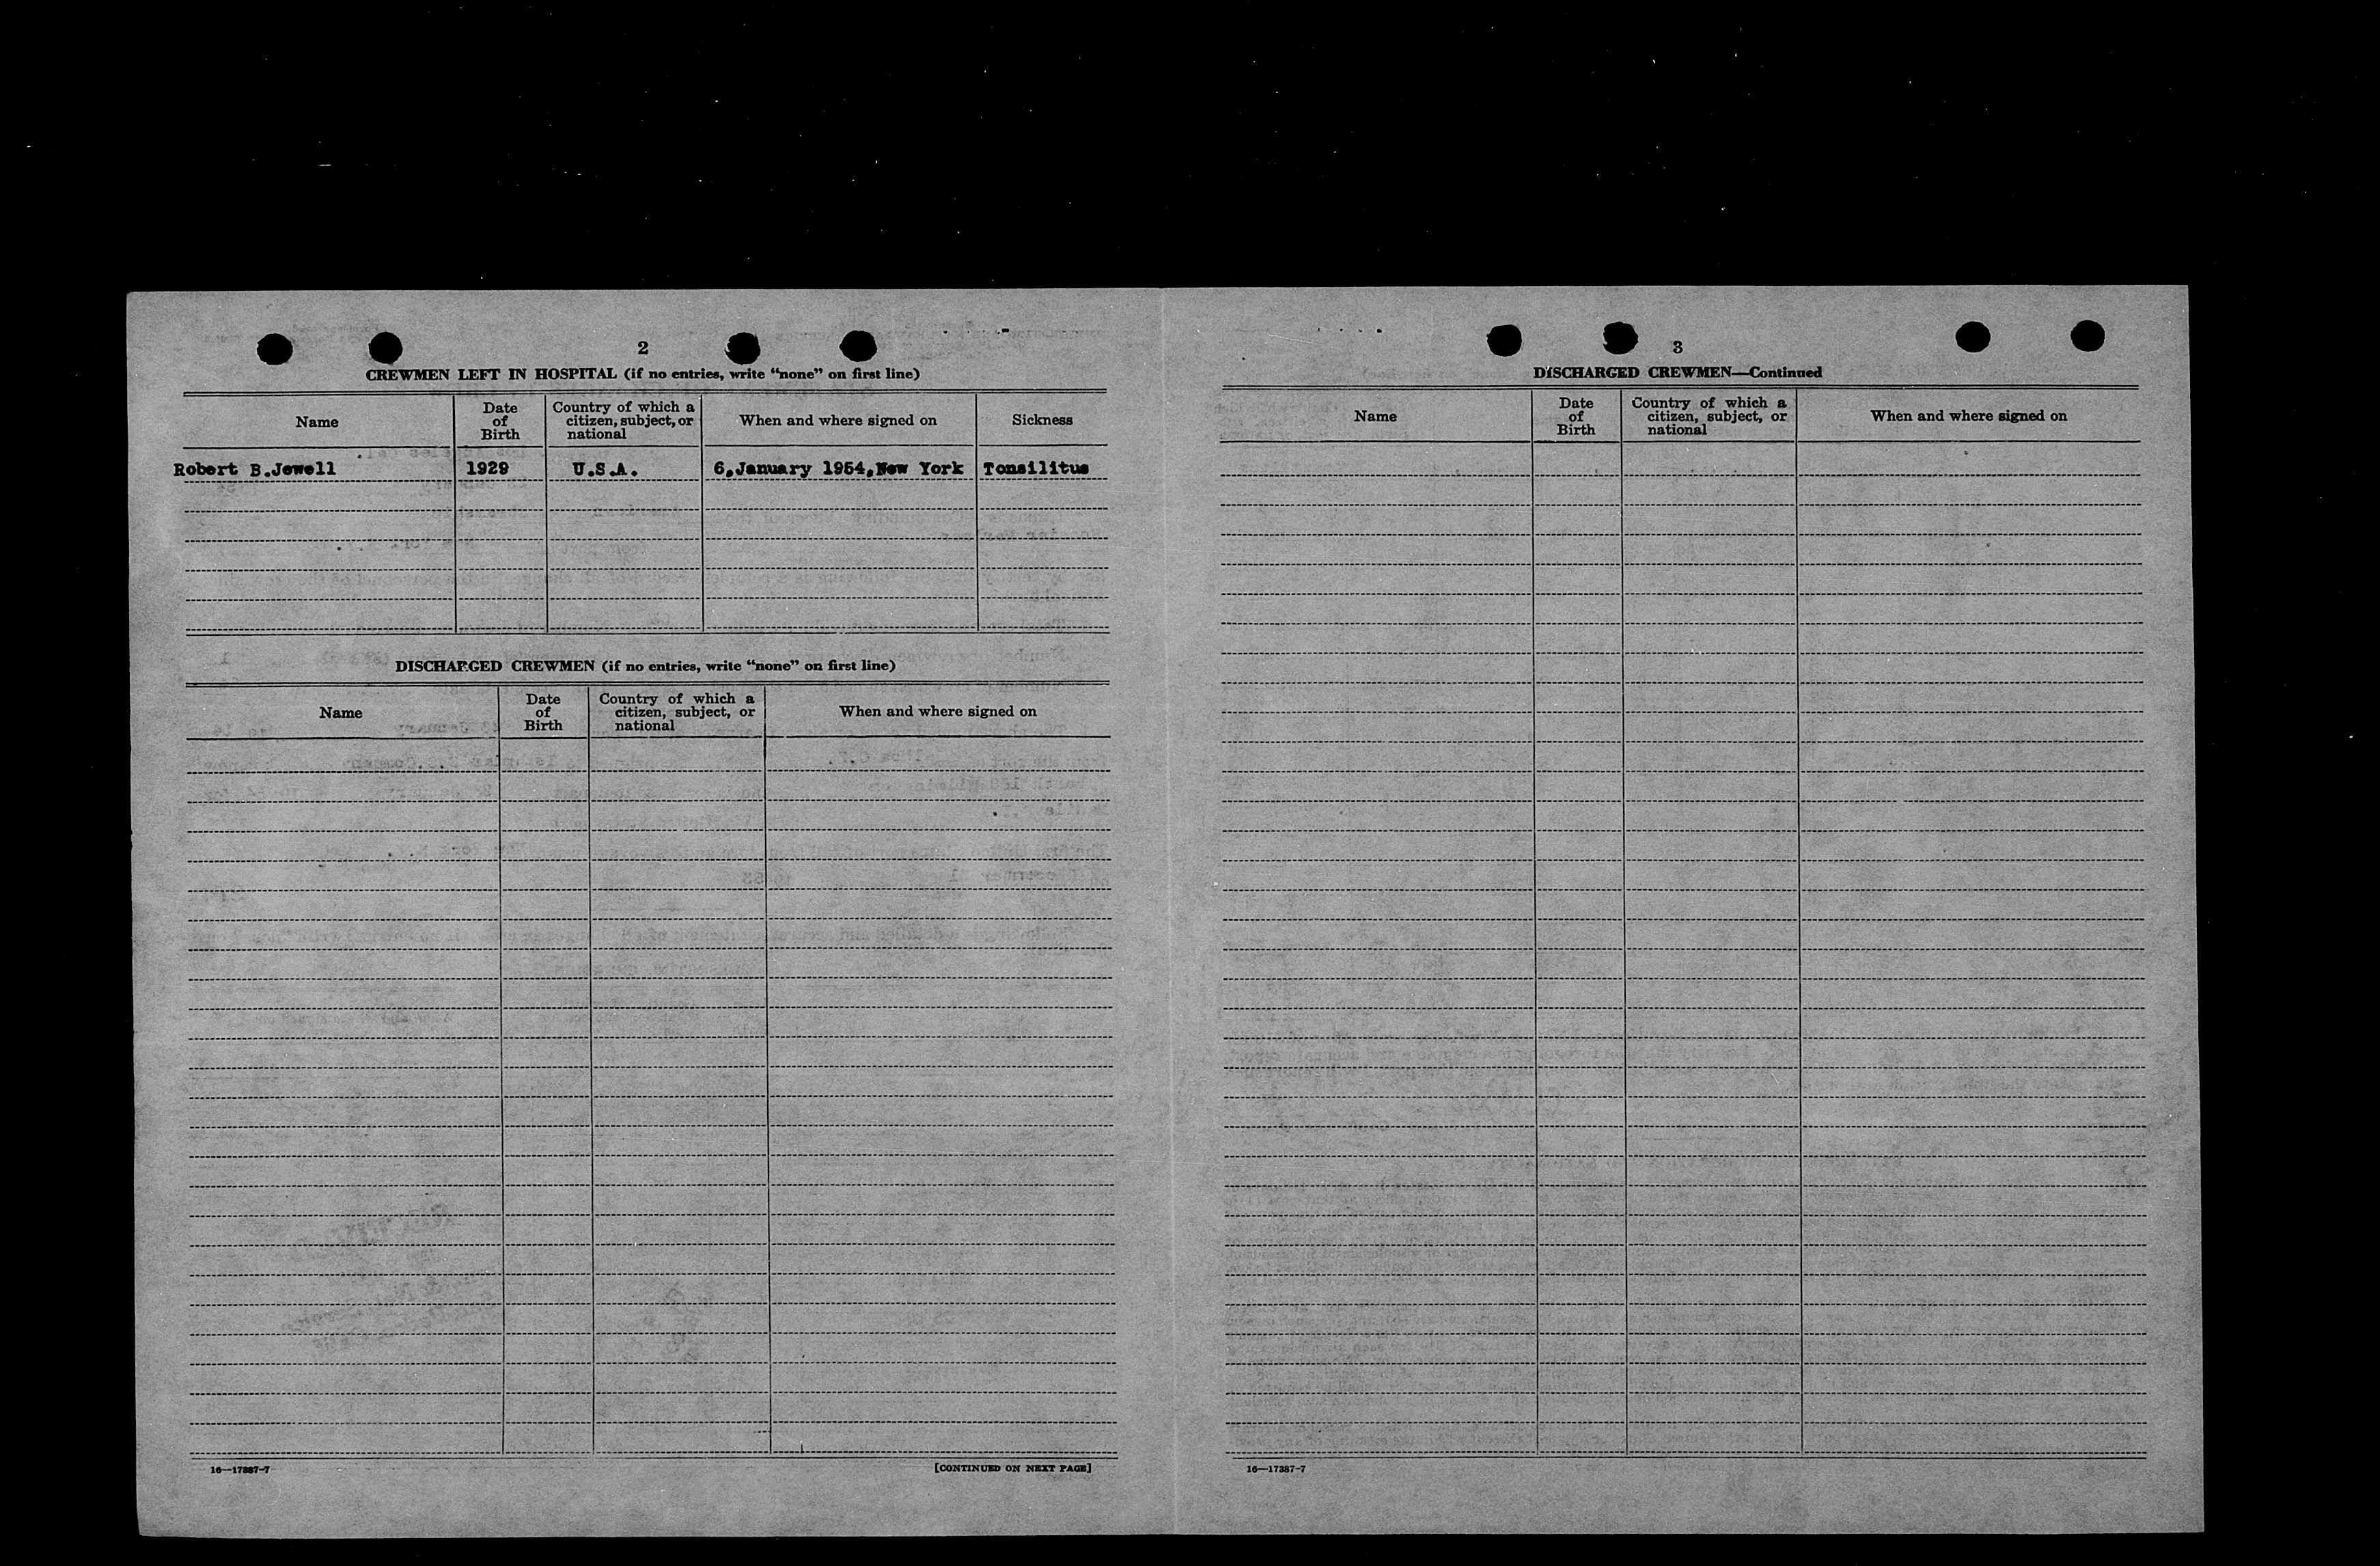 2
CREWMEN LEFT IN HOSPITAL (if no entries, write “none” on first line)
Name
Date of Birth
Country of which a citizen, subject, or national
When and where signed on
Sickness
Robert B.Jewell 1929 U.S.A. 6,January 1954,New York Tonsilitus
DISCHARGED CREWMEN (if no entries, write “none” on first line)
Name
Date of Birth
Country of which a citizen, subject, or national
When and where signed on
16—17387-7
[CONTINUED ON NEXT PAGE]
3
DISCHARGED CREWMEN—Continued
Name
Date of Birth
Country of which a citizen, subject, or national
When and where signed on
16—17387-7